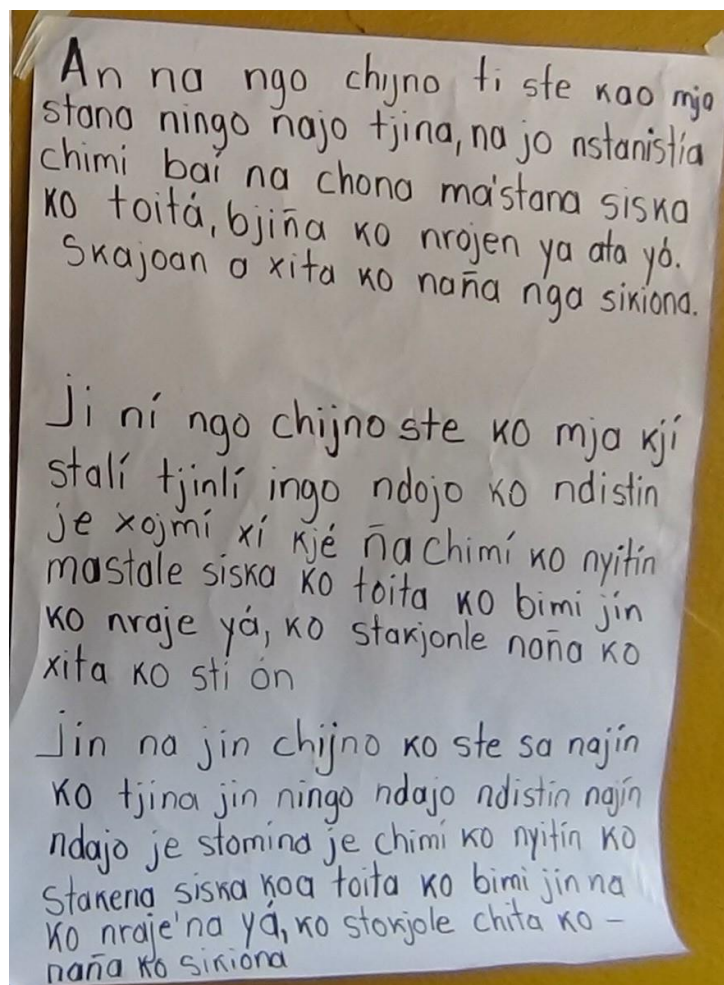 An na ngo chijno ti ste kao mja
stana ningo najo tjina, na jo nstanistía
chimi baí na chona ma'stana siska
ko toitá, bjiña ko nrojen ya ata yó.
Skajoan a xita ko naña nga sikiona.
Ji ní ngo chijno ste ko mja kjí
stalí tjinlí ingo ndojo ko ndistin
je xojmí xí kjé ña chimí ko nyitín
mastale siska ko toita ko bimi jín
ko nraje yá, ko starjonle naña ko
xita ko sti ón
Jin na jin chijno ko ste sa najín
ko tjina jin ningo ndajo ndistin najín
ndajo je stomina je chimi ko nyitín ko
stakena siska koa toita ko bimi jin na
ko nraje'na yá, ko storjole chita ko –
naña ko sikiona